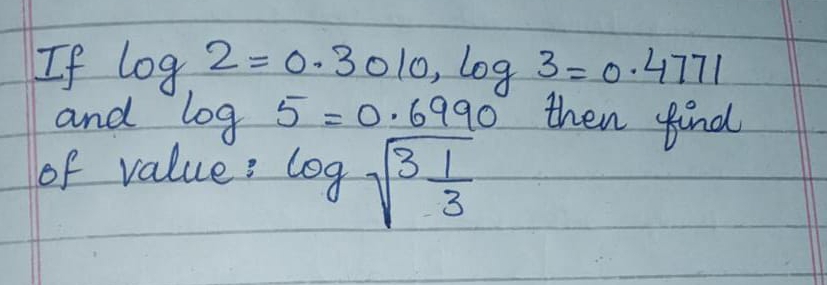 If log 2 = 0.3010, log 3 = 0.4771
and log 5 = 0.6990 then find
of value: log √(3 1/3)